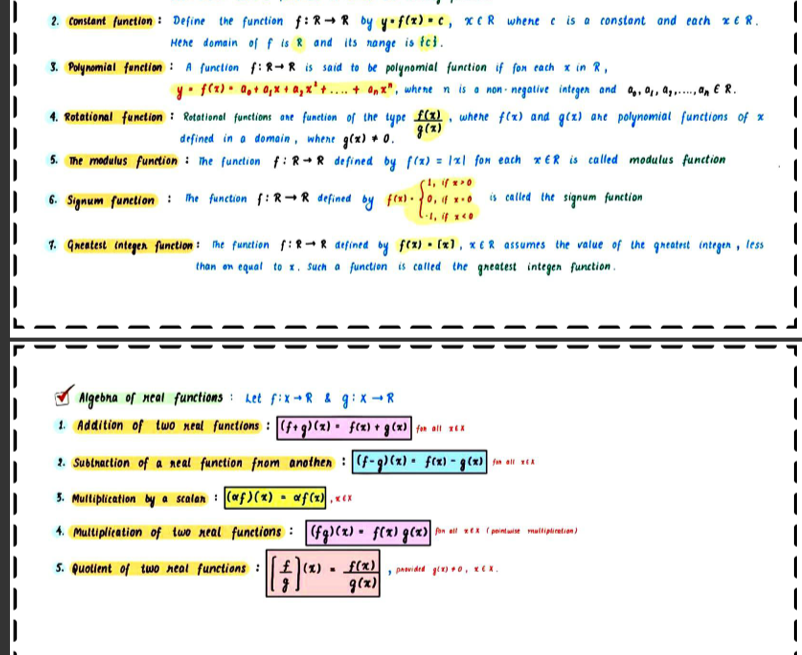 2. Constant function : Define the function f : R → R by y = f(x) = c, x ∈ R where c is a constant and each x ∈ R.
Here domain of f is R and its range is {c}.
3. Polynomial function : A function f : R → R is said to be polynomial function if for each x in R,
y = f(x) = a₀ + a₁x + a₂x² + .... + aₙxⁿ, where n is a non-negative integer and a₀, a₁, a₂,....., aₙ ∈ R.
4. Rotational function : Rotational functions are function of the type f(x)/g(x), where f(x) and g(x) are polynomial functions of x
defined in a domain, where g(x) ≠ 0.
5. The modulus function : The function f : R → R defined by f(x) = |x| for each x ∈ R is called modulus function
6. Signum function : The function f : R → R defined by f(x) = { 1, if x > 0 0, if x = 0 -1, if x < 0 is called the signum function
7. Greatest integer function : The function f : R → R defined by f(x) = [x], x ∈ R assumes the value of the greatest integer, less
than or equal to x. Such a function is called the greatest integer function.
Algebra of real functions : Let f : x → R & g : x → R
1. Addition of two real functions : (f+g)(x) = f(x) + g(x) for all x ∈ X
2. Subtraction of a real function from another : (f-g)(x) = f(x) - g(x) for all x ∈ X
3. Multiplication by a scalar : (αf)(x) = αf(x), x ∈ X
4. Multiplication of two real functions : (fg)(x) = f(x) g(x) for all x ∈ X (pointwise multiplication)
5. Quotient of two real functions : [f/g](x) = f(x)/g(x), provided g(x) ≠ 0, x ∈ X.